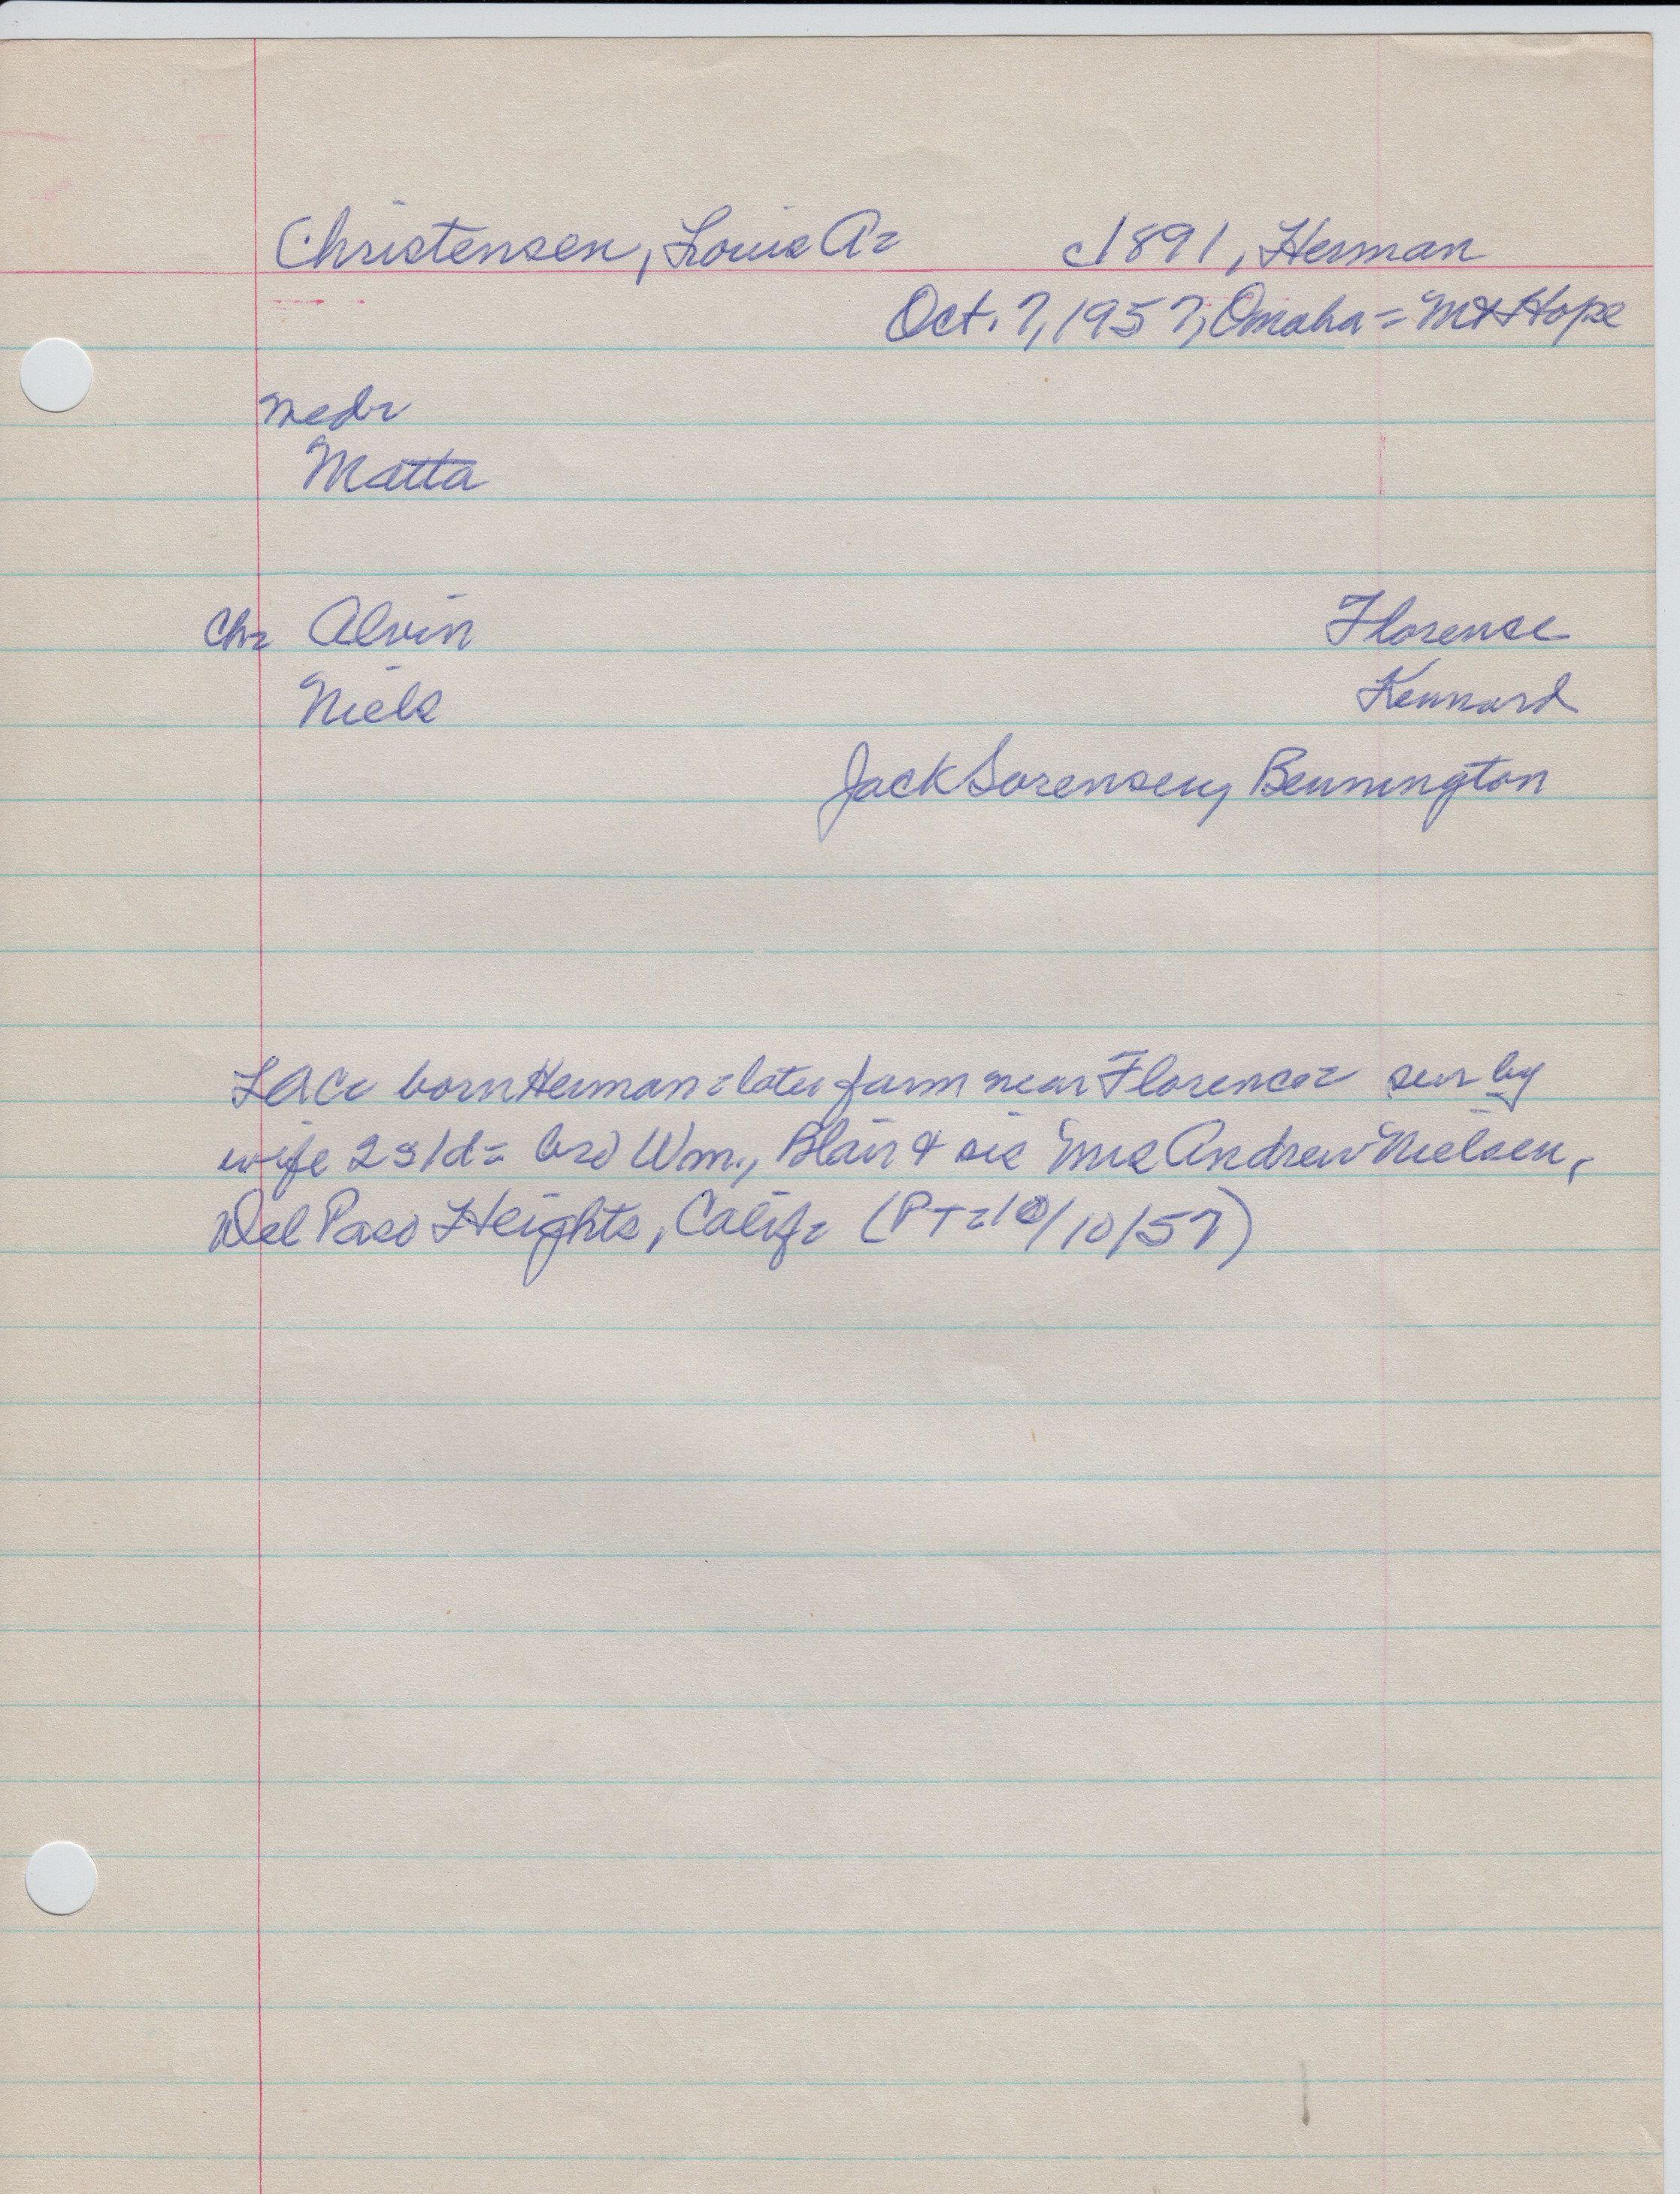 Christensen, Louis A= c1891, Herman
Oct. 7, 1957, Omaha = Mt Hope
med=
Matta
Ch= Alvin Florence
Niels Kennard
Jack Sorensen, Bennington
LAC= born Herman = later farm near Florence= sur by
wife 2s/d= bro Wm., Blair & sis Mrs Andrew Nielsen,
Del Paso Heights, Calif= (PT=10/10/57)